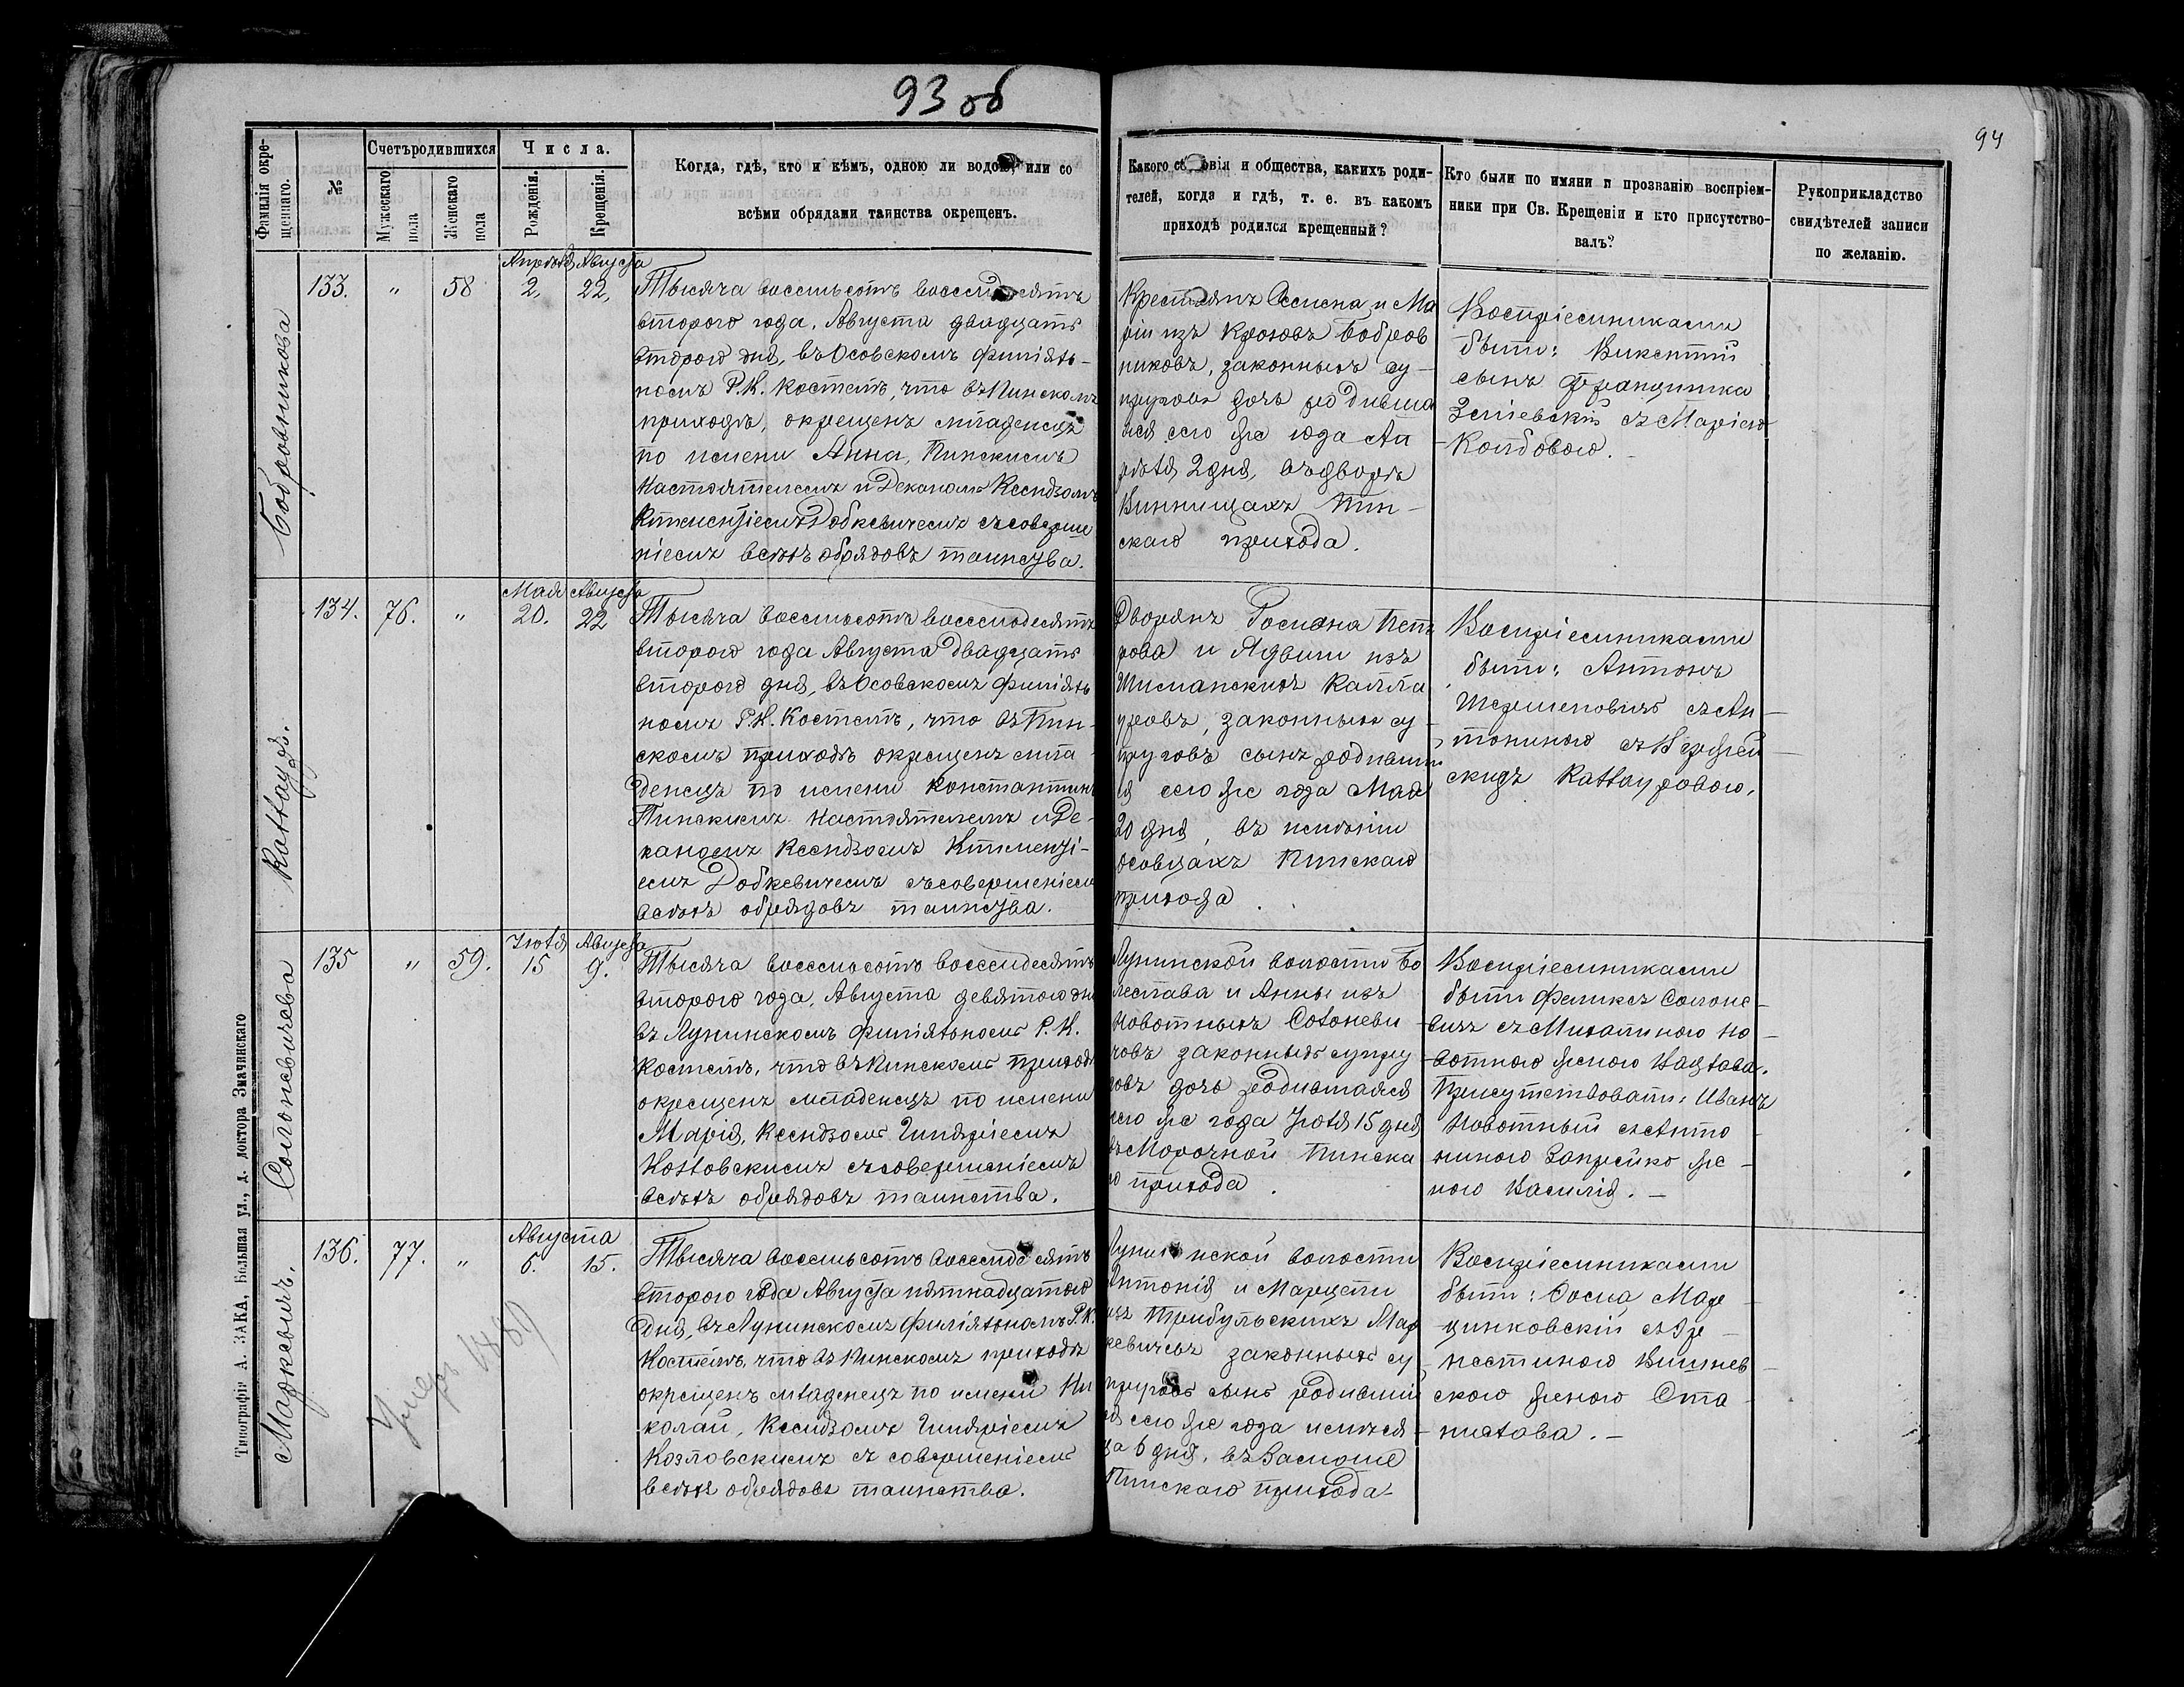 93 об
94
Фамилія окре-
щеннаго.
№
Счетъ родившихся
Мужескаго
пола
Женскаго
пола
Числа.
Рожденія.
Крещенія.
Когда, гдѣ, кто и кѣмъ, одною ли водою, или со
всѣми обрядами таинства окрещенъ.
Какого сословія и общества, какихъ роди-
телей, когда и гдѣ, т. е. въ какомъ
приходѣ родился крещенный?
Кто были по имяни и прозванію воспріем-
ники при Св. Крещеніи и кто присутство-
валъ?
Рукоприкладство
свидѣтелей записи
по желанію.
Бобровникова
133.
"
58
Апрѣля
2,
Августа
22,
Тысяча восемьсотъ восемьдесятъ
второго года, Августа двадцать
второго дня, въ Осовскомъ филіяль-
номъ Р.К. Костелѣ, что въ Пинскомъ
приходѣ, окрещенъ младенецъ
по имени Анна, Пинскимъ
Настоятелемъ и Деканомъ Ксендзомъ
Клеменсіемъ Добкевичемъ съ соверше
ніемъ всѣхъ обрядовъ таинства.
Крестьянъ Осипа и Ма
ріи изъ Кротовъ Бобров
никовъ, законныхъ су-
пруговъ дочь родивша
яся сего же года Ап
рѣля 2 дня, въ дворѣ
Винницахъ Пин-
скаго прихода.
Воспріемниками
были: Викентій
сынъ Францишка
съ Маріею
Колбовою.
Каллауръ.
134.
76.
"
Мая
20.
Августа
22
Тысяча восемьсотъ восемьдесятъ
второго года Августа двадцать
второго дня, въ Осовскомъ филіяль
номъ Р.К. Костелѣ, что въ Пин-
скомъ приходѣ окрещенъ мла-
денецъ по имени Константинъ
Пинскимъ Настоятелемъ и Де-
каномъ Ксендзомъ Клеменсі-
емъ Добкевичемъ съ совершеніемъ
всѣхъ обрядовъ таинства.
Дворянъ Романа Пет
рова и Ядвиги изъ
Шиманскихъ Калла
уровъ, законныхъ су-
пруговъ сынъ родившій
ся сего же года Мая
20 дня, въ имѣніи
Осовцахъ Пинскаго
прихода.
Воспріемниками
были: Антонъ
съ Ан-
тониною
Каллауровою.
Солоневичева
135
"
59.
Іюля
15
Августа
9.
Тысяча восемьсотъ восемьдесятъ
второго года, Августа девятого дня
въ Лунинскомъ филіяльномъ Р.К.
Костелѣ, что въ Пинскомъ приходѣ
окрещенъ младенецъ по имени
Марія, Ксендзомъ Гиляріемъ
Козловскимъ съ совершеніемъ
всѣхъ обрядовъ таинства.
Лунинской волости Бо
леслава и Анны изъ
Новотныхъ Солоневи-
човъ законныхъ супру
говъ дочь родившаяся
сего же года Іюля 15 дня
въ Морочной Пинска
го прихода.
Воспріемниками
были Феликсъ Солоне-
вичъ съ Михалиною Но-
вотною женою Вацлава.
Присутствовали: Иванъ
Новотный съ Анто-
ниною Запрейко же-
ною Василія. -
Маркевичъ.
136.
77.
"
Августа
6.
15.
Умеръ
Тысяча восемьсотъ восемьдесятъ
второго года Августа пятнадцатого
дня, въ Лунинскомъ филіяльномъ Р.К.
Костелѣ, что въ Пинскомъ приходѣ
окрещенъ младенецъ по имени Ни
колай, Ксендзомъ Гиляріемъ
Козловскимъ съ совершеніемъ
всѣхъ обрядовъ таинства.
Лунинской волости
Антонія и Марцели
изъ Трибульскихъ Мар
кевичовъ законныхъ су-
пруговъ сынъ родившій
ся сего же года мѣся
ца 6 дня, въ
Пинскаго прихода
Воспріемниками
были: Фома Мар-
цинковскій съ Эр-
нестиною Вишнев-
скою женою Ста-
нислава. -
Типографія А. ЗАКА, Большая ул., д. доктора Значинскаго